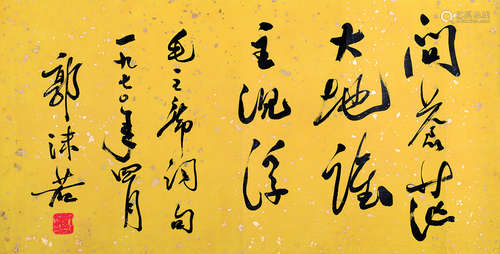 问苍茫
大地谁
主沉浮
毛主席词句
一九七〇年四月
郭沫若